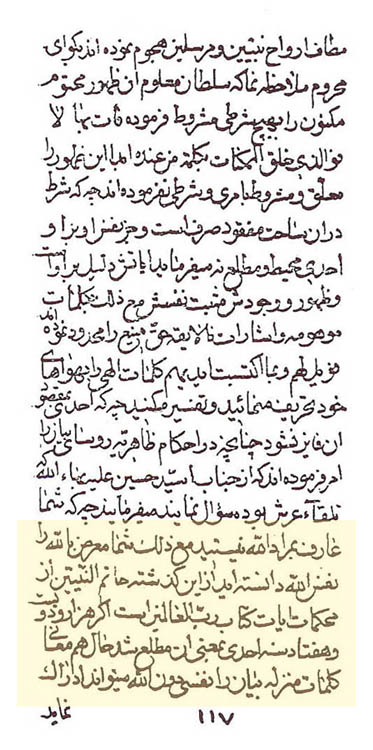 مطاف ارواح نبیّین و مرسلین هجوم نموده اند بگو ای
محروم ملاحظه نما که سلطان معلوم از ظهور محتوم
مکنون را بهیچ شرطی مشروط فرموده فات بها لا
فوالذی خلق الممکنات بکلمة من عنده ابدا این ظهور را
معلّق و مشروط بامری و بشرطی نفرموده اند چه که شرط
در ان ساحت مفقود صرف است و جز نفس او بر او
احدی محیط و مطلع نه میفرماید ایاتش دلیل بر او است
و ظهور و وجودش مثبت نفسش مع ذلک بکلمات
موهومه و اشارات نالایقه حقّ منیع را محدود نموده اند
فویل لهم و بما اکتسبت ایدیهم کلمات الهی را بهواهای
خود تحریف مینمائید و تفسیر میکنید چه که احدی بمقصود
ان فایز نشود چنانچه در احکام ظاهریّه روسای بیان را
امر فرموده اند که از جناب اسیّد حسین علیه بهاء الله که
تلقاء عرش بوده سؤال نمایند میفرمایند چه که شما
عارف بمراد الله نیستید مع ذلک شما معرض بالله را
نفس الله دانسته اید از این گذشته خاتم النبیّین از
محکمات ایات کتاب ربّ العالمین است اگر هزار و دویست
و هفتاد سنه احدی بمعنی ان مطلع شد حال هم معانی
کلمات منزله بیان را نفسی دون الله میتواند ادراک
نماید
١١٧